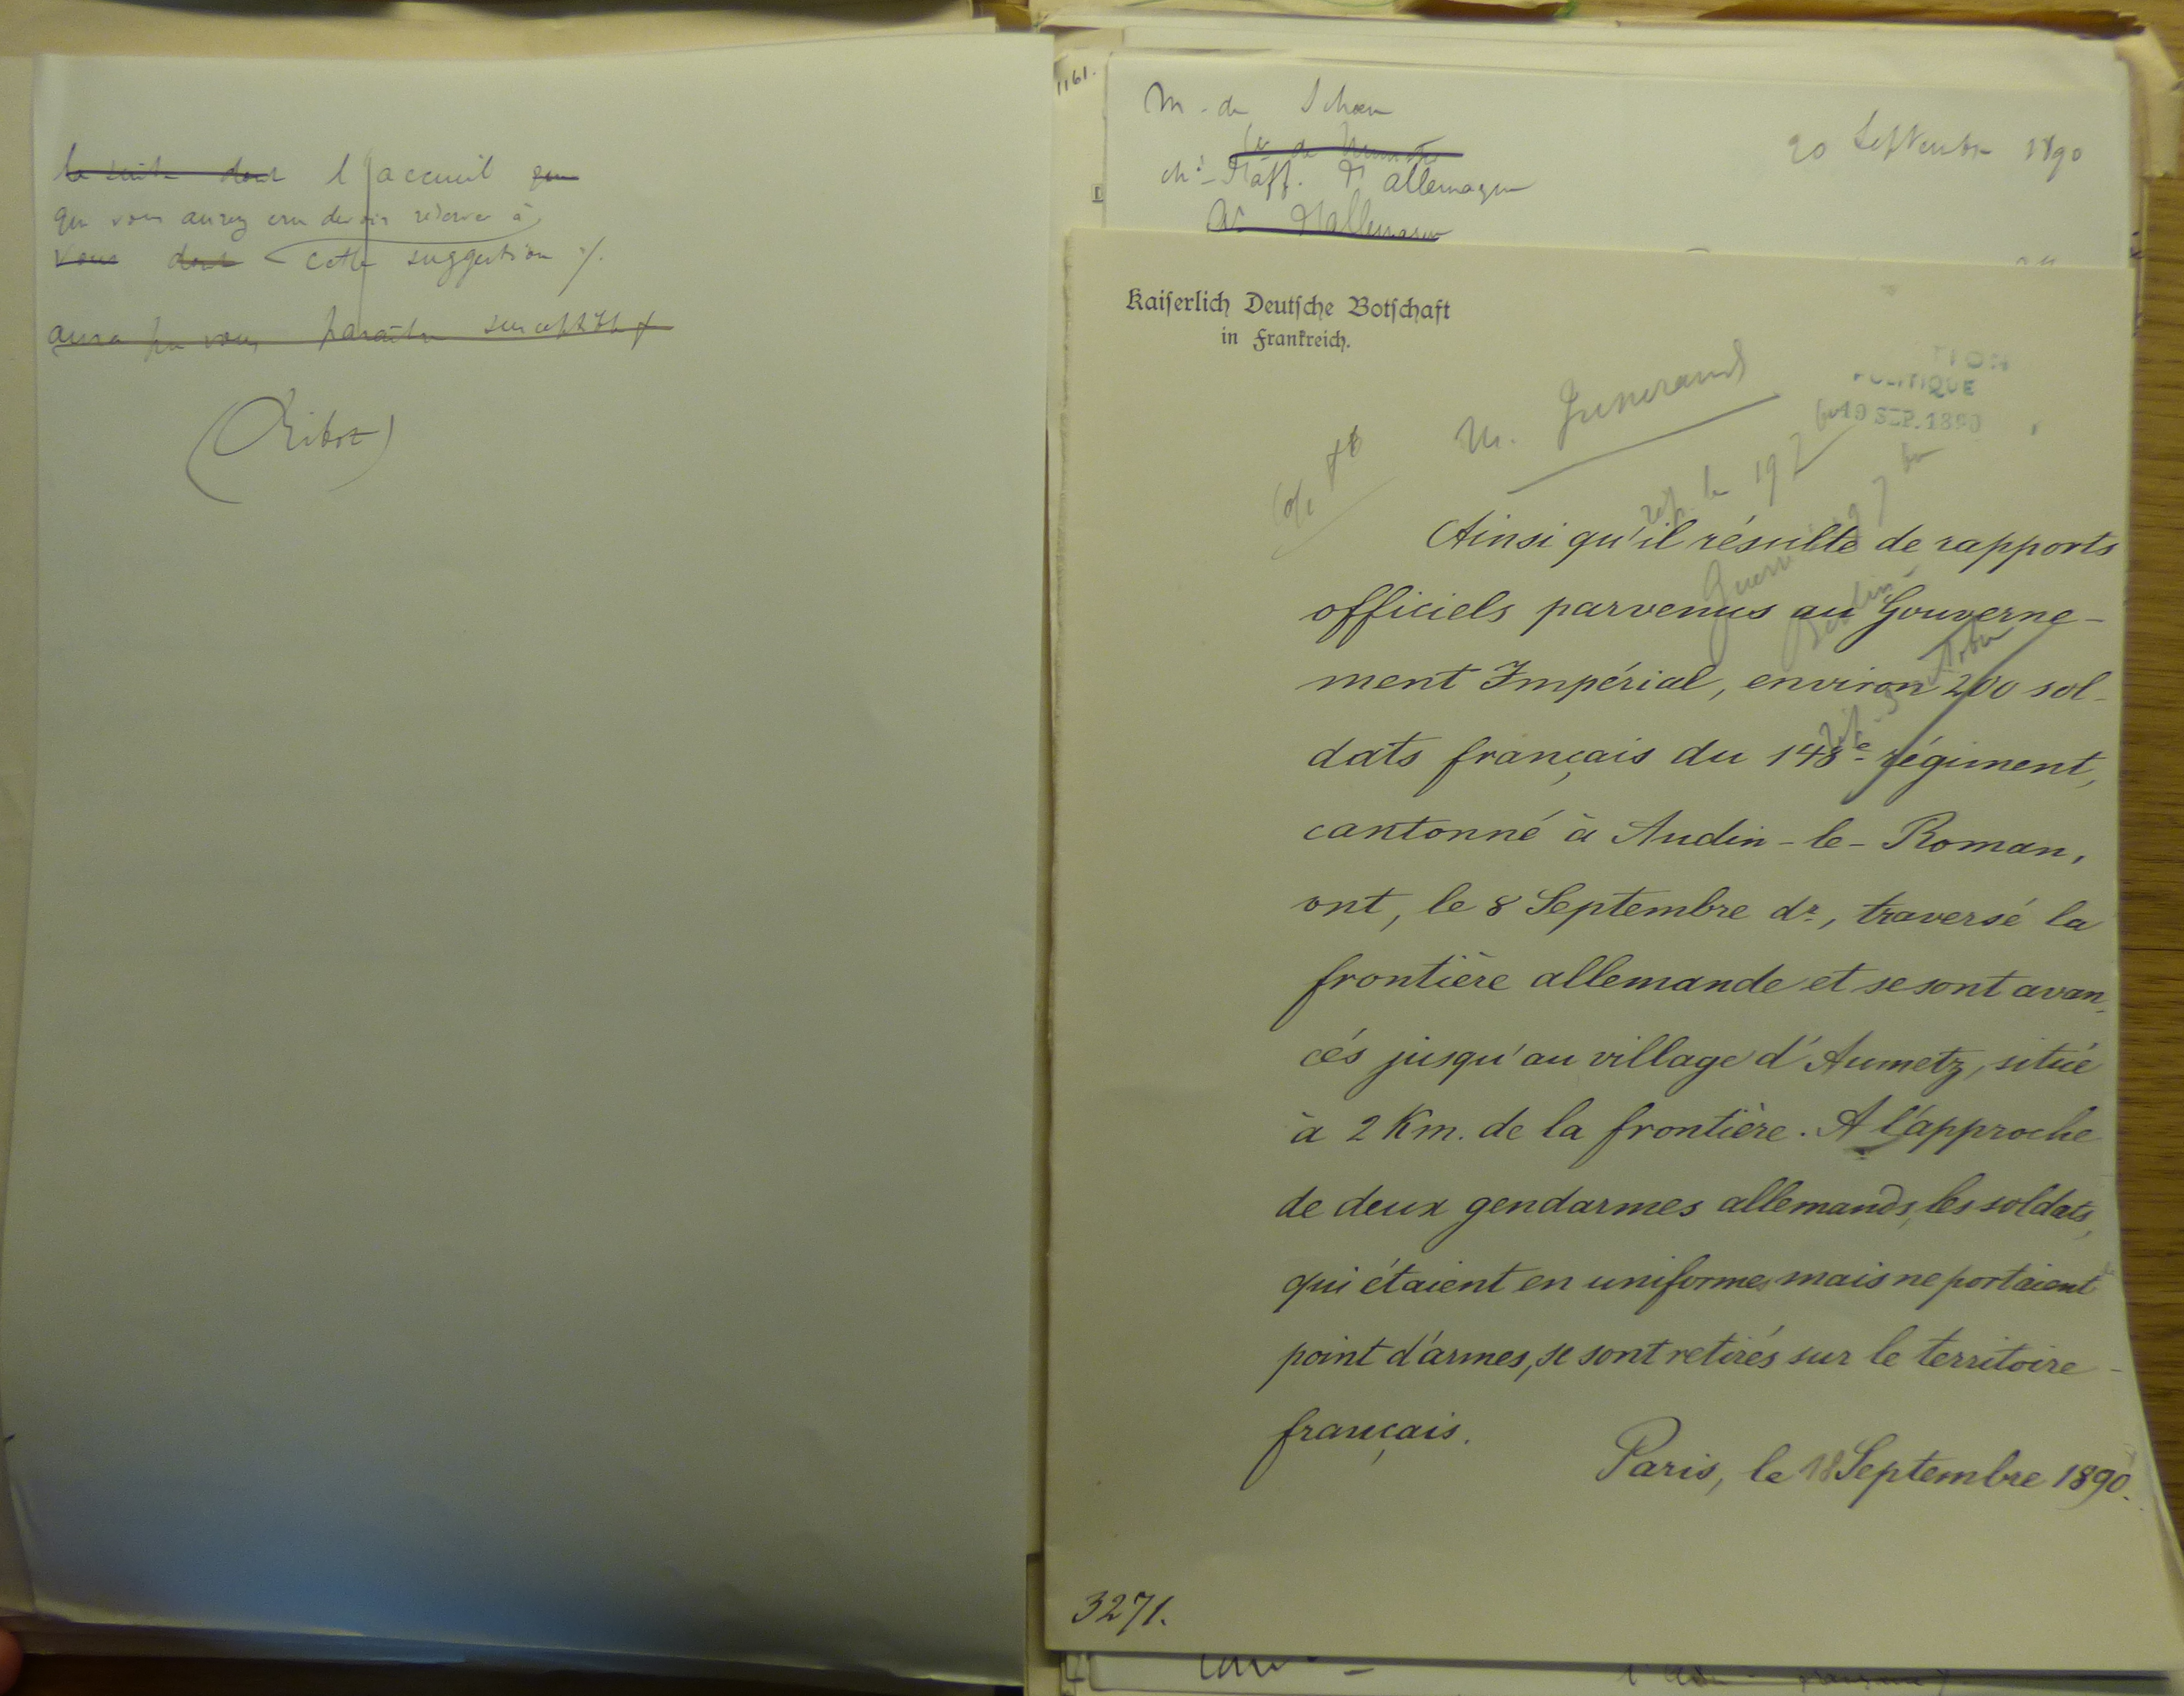 la suite dont l'accueil que
que vous aurez cru devoir réserver à
vous dont cette suggestion ./.
aura pu vous paraître susceptible
(Ribot)
1161.
M. de Schoen
20 Septembre 1890
ché d'aff. d'allemagne
d'allemagne
Kaiserlich Deutsche Botschaft
in Frankreich.
TION
POLITIQUE
19 SEP. 1890
M. Jusserand
rép. le 19 7
Guerre
Berlin
Ainsi qu'il résulte de rapports
officiels parvenus au Gouverne-
ment Impérial, environ 200 sol-
dats français du 148e régiment,
cantonné à Audin-le-Roman,
ont, le 8 Septembre dr., traversé la
frontière allemande et se sont avan-
cés jusqu'au village d'Aumetz, situé
à 2 Km. de la frontière. A l'approche
de deux gendarmes allemands, les soldats,
qui étaient en uniformes mais ne portaient
point d'armes, se sont retirés sur le territoire
français.
Paris, le 18 Septembre 1890.
3271.